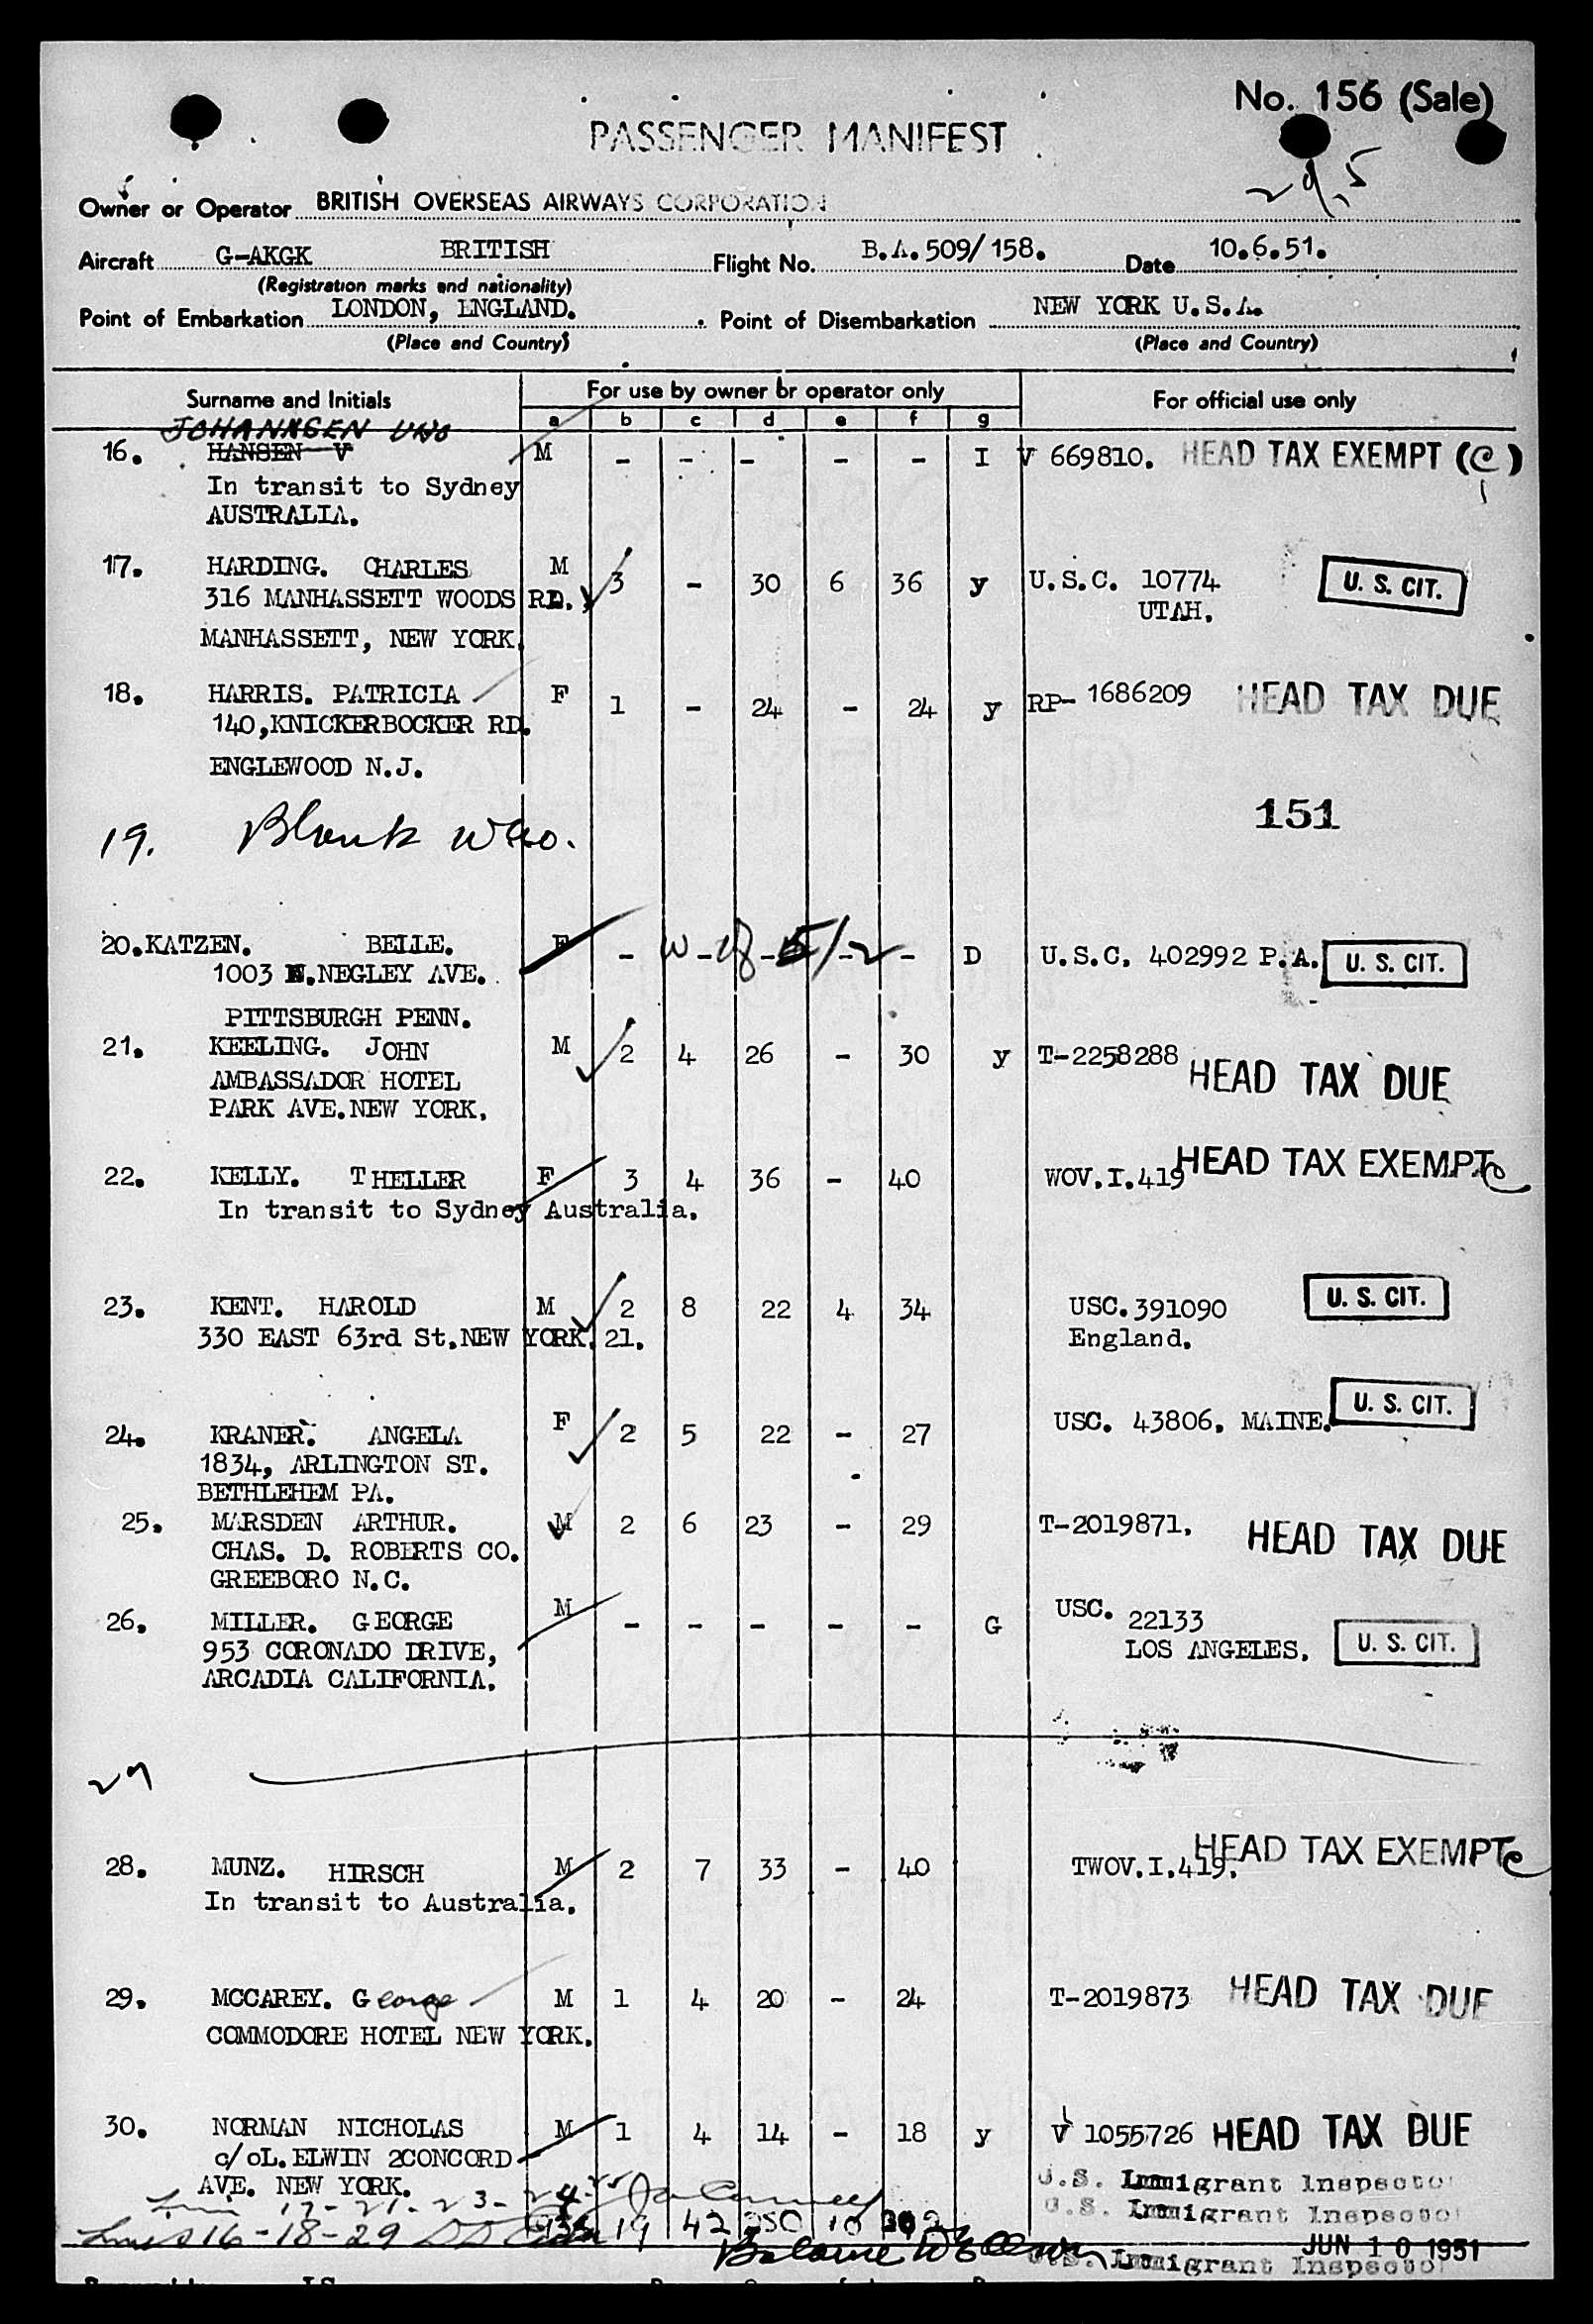 No. 156 (Sale)
PASSENGER MANIFEST
29.5
Owner or Operator BRITISH OVERSEAS AIRWAYS CORPORATION
Aircraft G-AKGK BRITISH Flight No. B.A. 509/158. Date 10.6.51.
(Registration marks and nationality)
Point of Embarkation LONDON, ENGLAND. Point of Disembarkation NEW YORK U.S.A.
(Place and Country) (Place and Country)
Surname and Initials For use by owner or operator only For official use only
a b c d e f g
JOHANNSEN UNO
16. HANSEN V M - - - - - I V 669810. HEAD TAX EXEMPT (C)
In transit to Sydney
AUSTRALIA.
17. HARDING. CHARLES M 3 - 30 6 36 y U.S.C. 10774 U. S. CIT.
316 MANHASSETT WOODS RD. UTAH.
MANHASSETT, NEW YORK.
18. HARRIS. PATRICIA F 1 - 24 - 24 y RP- 1686209 HEAD TAX DUE
140,KNICKERBOCKER RD.
ENGLEWOOD N.J.
151
19. Blank
20.KATZEN. BELLE. F - - - - - D U.S.C. 402992 P.A. U. S. CIT.
1003 N.NEGLEY AVE.
PITTSBURGH PENN.
21. KEELING. JOHN M 2 4 26 - 30 y T-2258288 HEAD TAX DUE
AMBASSADOR HOTEL
PARK AVE.NEW YORK.
22. KELLY. THELLER F 3 4 36 - 40 WOV.I.419 HEAD TAX EXEMPT c
In transit to Sydney Australia.
23. KENT. HAROLD M 2 8 22 4 34 USC.391090 U. S. CIT.
330 EAST 63rd St.NEW YORK. 21. England.
24. KRANER. ANGELA F 2 5 22 - 27 USC. 43806. MAINE. U. S. CIT.
1834, ARLINGTON ST.
BETHLEHEM PA.
25. MARSDEN ARTHUR. M 2 6 23 - 29 T-2019871. HEAD TAX DUE
CHAS. D. ROBERTS CO.
GREEBORO N.C.
26. MILLER. GEORGE M - - - - - G USC. 22133
953 CORONADO DRIVE, LOS ANGELES. U. S. CIT.
ARCADIA CALIFORNIA.
27
28. MUNZ. HIRSCH M 2 7 33 - 40 TWOV.I.419. HEAD TAX EXEMPT c
In transit to Australia.
29. MCCAREY. George M 1 4 20 - 24 T-2019873 HEAD TAX DUE
COMMODORE HOTEL NEW YORK.
30. NORMAN NICHOLAS M 1 4 14 - 18 y V 1055726 HEAD TAX DUE
c/oL.ELWIN 2CONCORD
AVE. NEW YORK.
U.S. Immigrant Inspector
17-21-23-24-25
U.S. Immigrant Inspector
Lines 16-18-29 19 42 250 10
JUN 10 1951
Balance
U.S. Immigrant Inspector